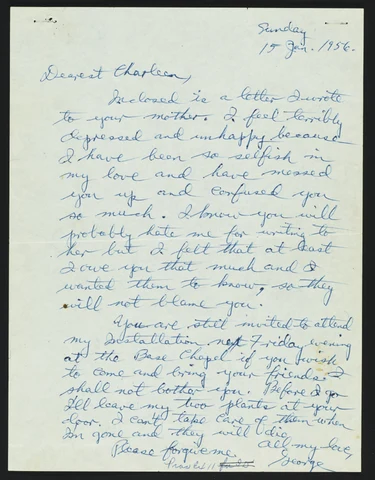 Sunday
15 Jan. 1956.
Dearest Charleen,
Inclosed is a letter I wrote
to your mother. I feel terribly
depressed and unhappy because
I have been so selfish in
my love and have messed
you up and confused you
so much. I know you will
probably hate me for writing to
her but I felt that at least
I owe you that much and I
wanted them to know, so they
will not blame you.
You are still invited to attend
my Installation next Friday evening
at the Base Chapel if you wish
to come and bring your friends. I
shall not bother you. Before I go
I'll leave my two plants at your
door. I can't take care of them when
I'm gone and they will die.
All my love,
Please forgive me.
George